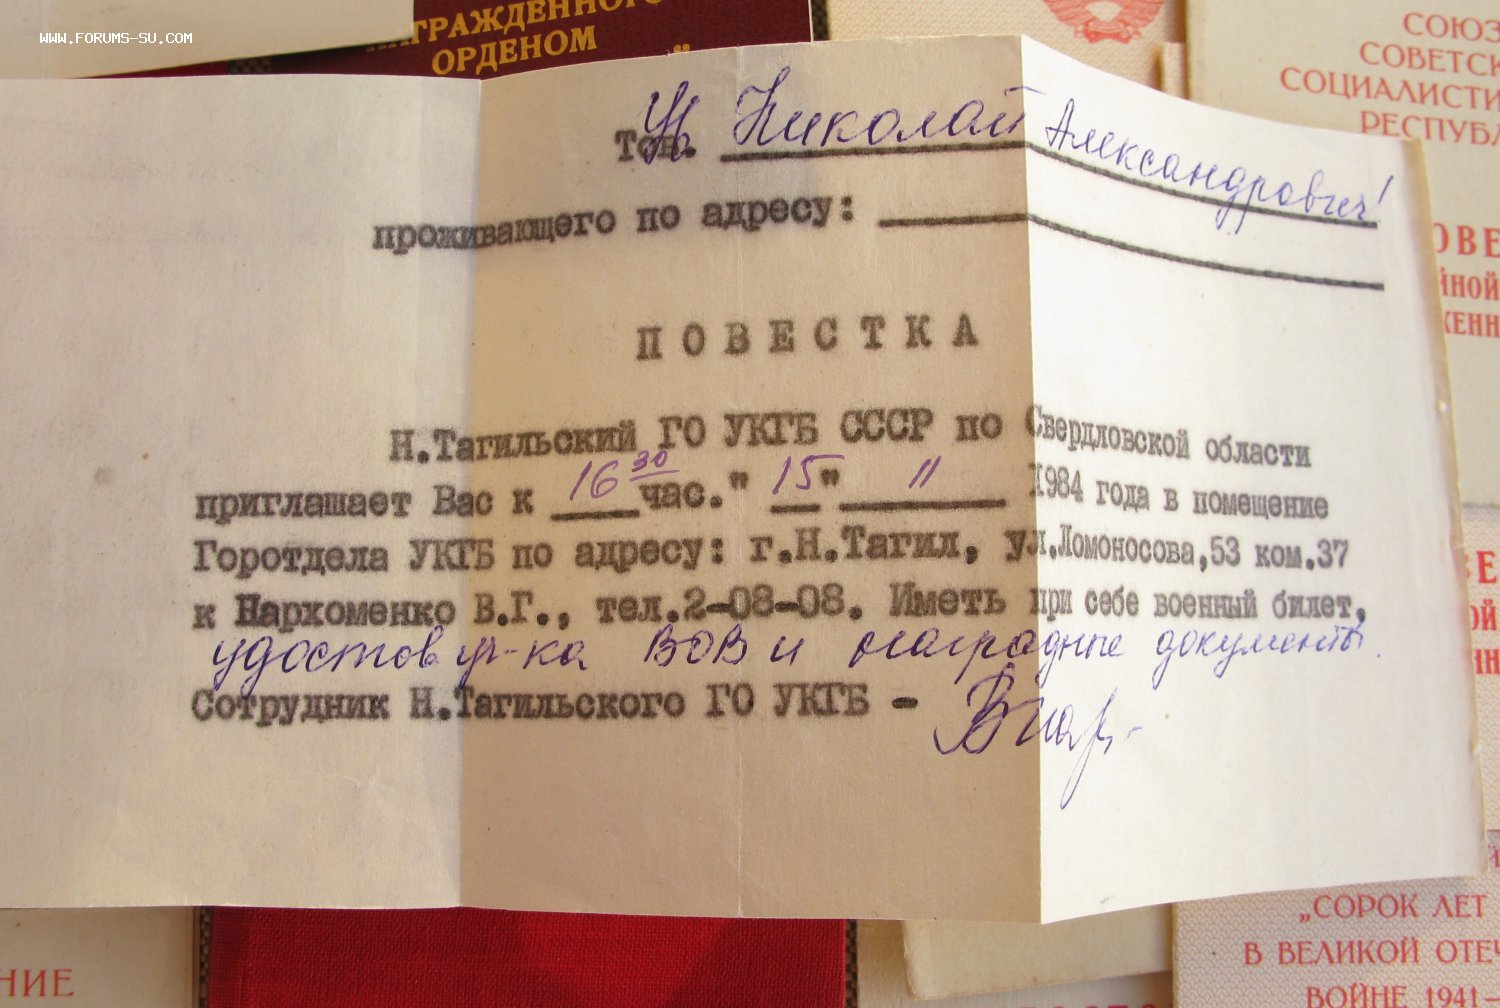 WWW.FORUMS-SU.COM
НАГРАЖДЕННОГО
ОРДЕНОМ
СОЮЗ
СОВЕТСК
СОЦИАЛИСТИ
РЕСПУБЛ
Тов. Николай Александрович!
проживающего по адресу:
ПОВЕСТКА
Н.Тагильский ГО УКГБ СССР по Свердловской области
приглашает Вас к 16 30 час." 15 " 11 1984 года в помещение
Горотдела УКГБ по адресу: г.Н.Тагил, ул.Ломоносова,53 ком.37
к Пархоменко В.Г., тел.2-08-08. Иметь при себе военный билет,
удостов ур-ка ВОВ и наградные документы.
Сотрудник Н.Тагильского ГО УКГБ -
ОВЕ
ЙНОЙ
ЖЕНН
„СОРОК ЛЕТ
В ВЕЛИКОЙ ОТЕЧ
ВОЙНЕ 1941-
НИЕ